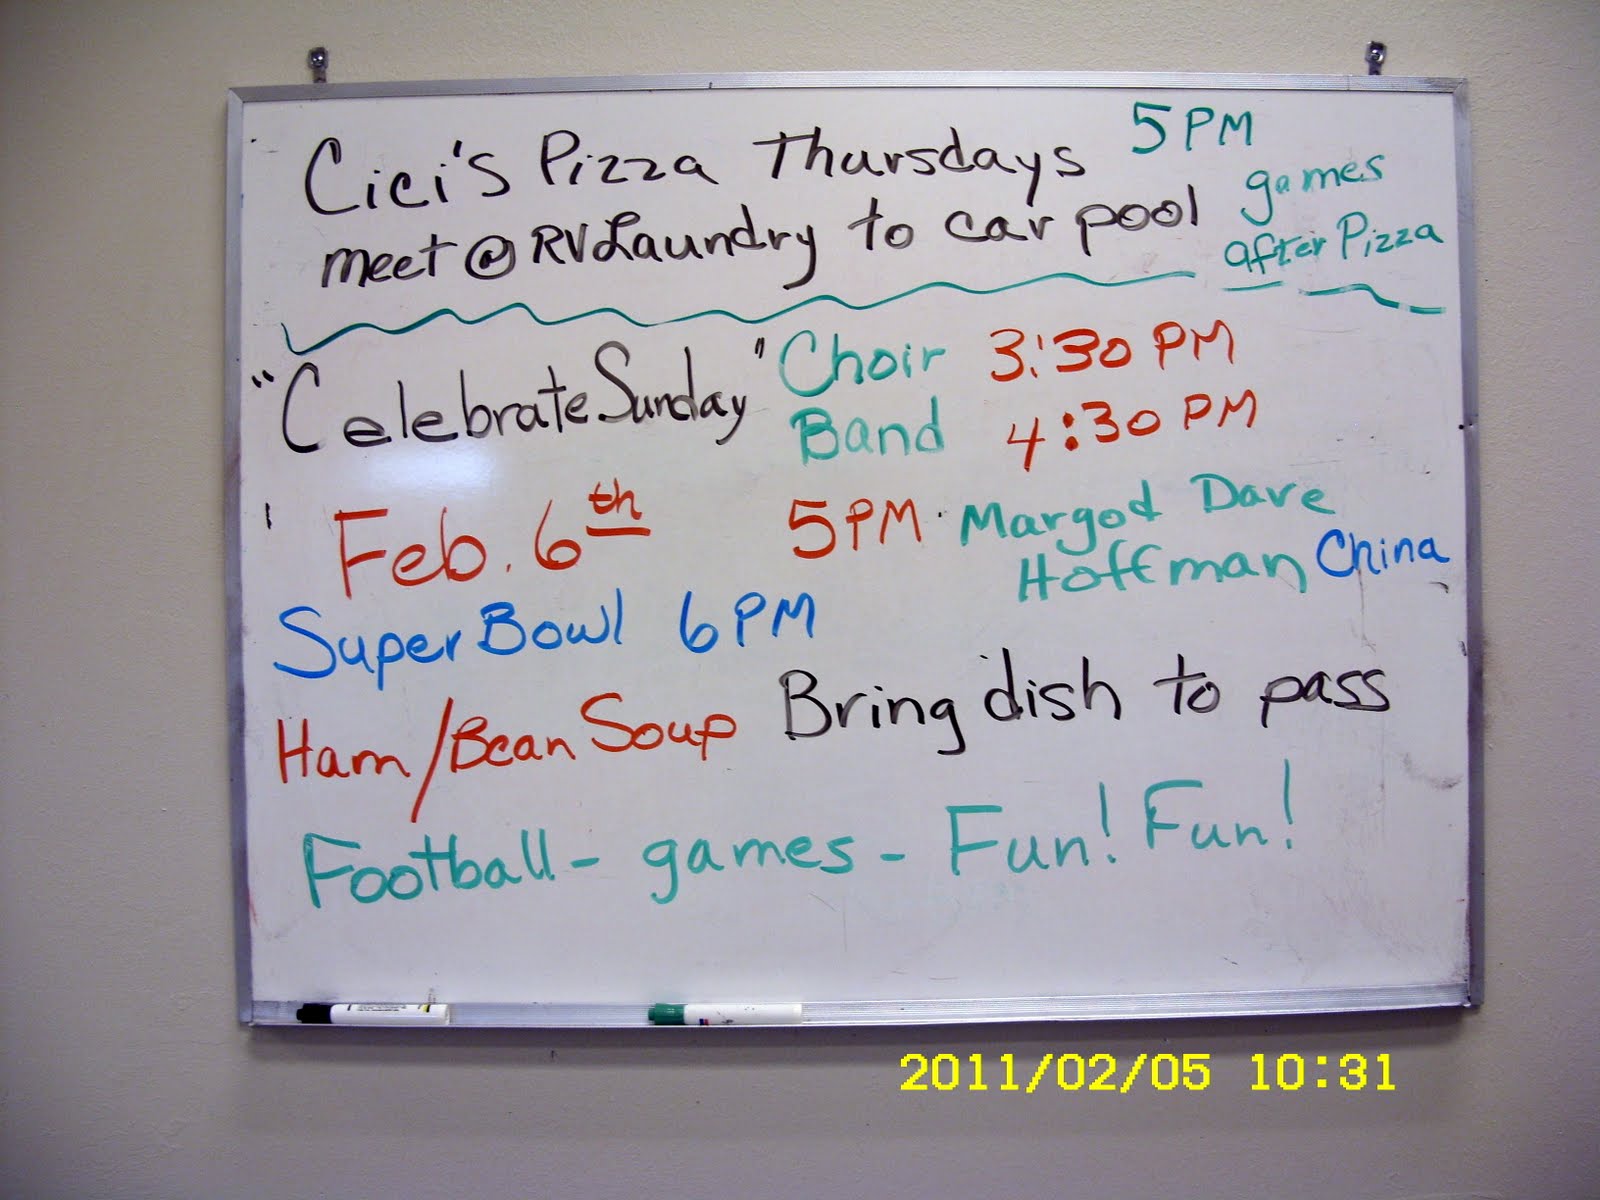 Cici's Pizza Thursdays 5 PM
meet @ RV Laundry to car pool games
after Pizza
"Celebrate Sunday" Choir 3:30 PM
Band 4:30 PM
Feb. 6th 5 PM Margot Dave
Hoffman China
Super Bowl 6 PM
Ham/Bean Soup Bring dish to pass
Football - games - Fun! Fun!
2011/02/05 10:31